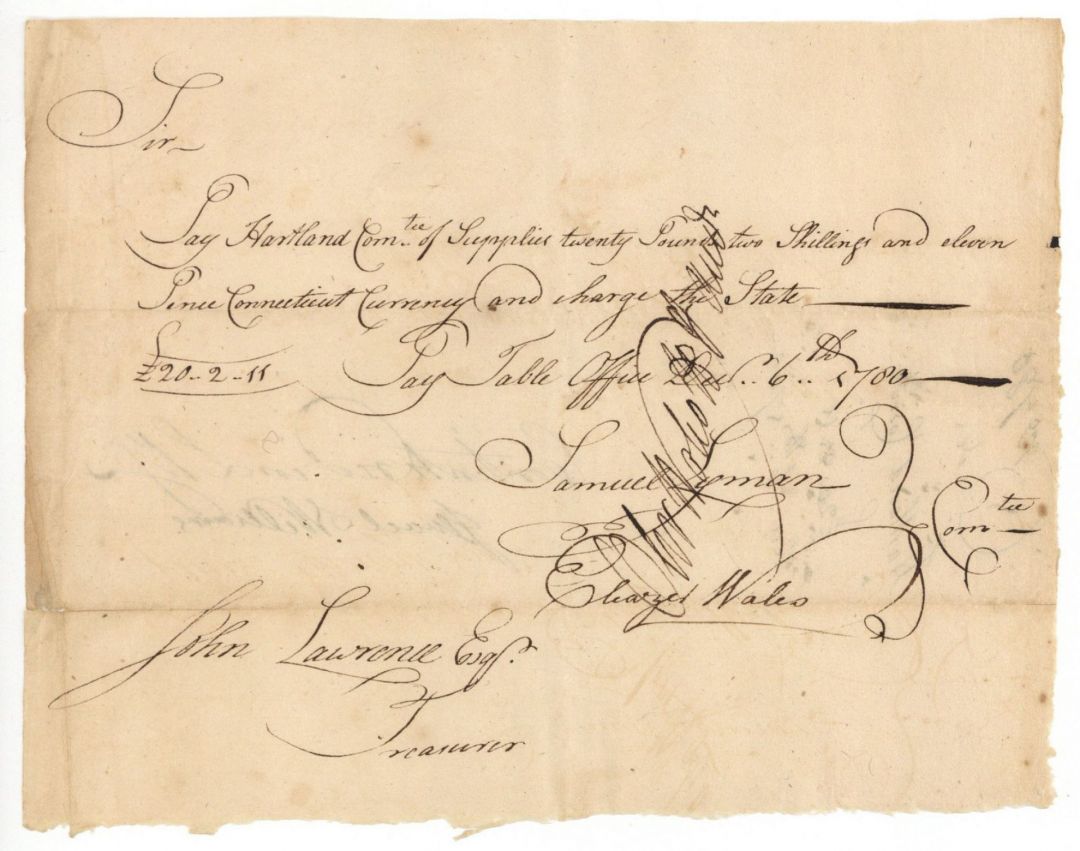 Sir
Pay Hartland Comtie of Supplies twenty Pounds two Shillings and eleven
Pence Connecticut Currency and charge the State
£20--2--11 Pay Table Office Decr. 6th 1780
Samuel Lyman
Eleazer Wales
Comtie
John Lawrence Esqr.
Treasurer